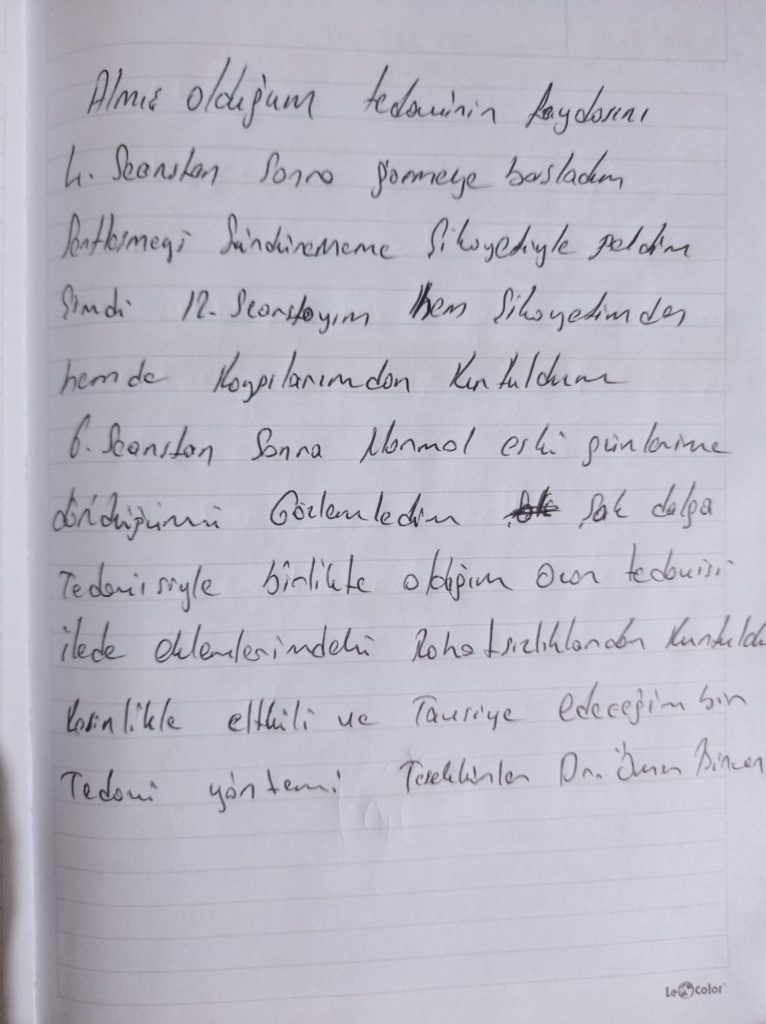 Almış olduğum tedavinin faydasını
4. Seanstan Sonra görmeye başladım
Sertleşmeyi Sürdürememe Şikayetiyle geldim
Şimdi 12. Seanstayım Hem Şikayetimden
hemde Kaygılarımdan Kurtuldum
6. Seanstan Sonra Normal eski günlerime
döndüğümü Gözlemledim Şok dalga
Tedavisiyle birlikte olduğum Ozon tedavisi
ilede eklemlerimdeki Rahatsızlıklardan Kurtuldu
Kesinlikle etkili ve Tavsiye edeceğim bir
Tedavi yöntemi Teşekkürler Dr. Ömer
Le Color